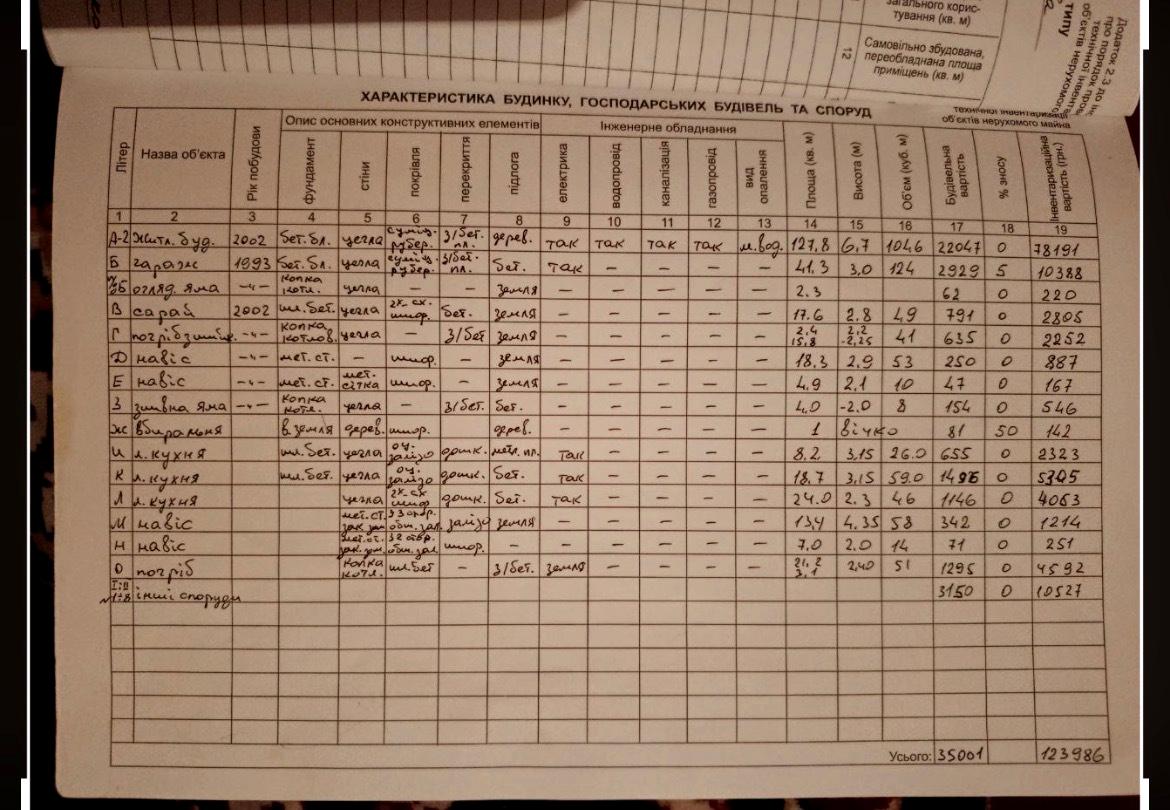 загального корис-
тування (кв. м)
12
Самовільно збудована,
переобладнана площа
приміщень (кв. м)
Додаток 2.3 до
про порядок
технічної
об'єктів нерухомого
типу
ХАРАКТЕРИСТИКА БУДИНКУ, ГОСПОДАРСЬКИХ БУДІВЕЛЬ ТА СПОРУД
технічної інвентаризації
об'єктів нерухомого майна
Літер Назва об'єкта Рік побудови Опис основних конструктивних елементів Інженерне обладнання Площа (кв. м) Висота (м) Об'єм (куб. м) Будівельна вартість % зносу Інвентаризаційна вартість (грн.)
фундамент стіни покрівля перекриття підлога електрика водопровід каналізація газопровід вид опалення
1 2 3 4 5 6 7 8 9 10 11 12 13 14 15 16 17 18 19
А-2 житл. буд. 2002 бет.бл. цегла суміщ. рубер. з/бет. пл. дерев. так так так так м.вод. 127,8 6,7 1046 22047 0 78191
Б гараж 1993 бет.бл. цегла суміщ. рубер. з/бет. пл. бет. так – – – – 41,3 3,0 124 2929 5 10388
п/Б огляд. яма –"– копка котл. цегла – – земля – – – – – 2.3 62 0 220
В сарай 2002 шл.бет. цегла 2х-сх. шиф. бет. земля – – – – – 17.6 2.8 49 791 0 2805
Г –"– копка котлов. цегла – з/бет земля – – – – – 2,4 15,8 2,2 -2,25 41 635 0 2252
Д навіс –"– мет.ст. – шиф. – земля – – – – – 18.3 2.9 53 250 0 887
Е навіс –"– мет.ст. мет. сітка шиф. – земля – – – – – 4.9 2.1 10 47 0 167
З зливна яма –"– копка котл. цегла – з/бет. бет. – – – – – 4.0 -2.0 8 154 0 546
Ж вбиральня в земля дерев. шиф. дерев. – – – – – 1 вічко 81 50 142
И л.кухня шл.бет. цегла оц. залізо дошк. метл.пл. так – – – – 8.2 3,15 26.0 655 0 2323
К л.кухня шл.бет. цегла оц. залізо дошк. бет. так – – – – 18,7 3,15 59.0 1496 0 5305
Л л.кухня цегла 2х-сх шиф дошк. бет. так – – – – 24.0 2.3 46 1146 0 4063
М навіс мет.ст. залізо земля – – – – – 13,4 4.35 58 342 0 1214
Н навіс мет.ст. шиф. – – – – – – 7.0 2.0 14 71 0 251
О погріб копка котл. шл.бет – з/бет. земля – – – – 21,2 3,1 2,40 51 1295 0 4592
інші споруди 3150 0 10527
Усього: 35001 123986